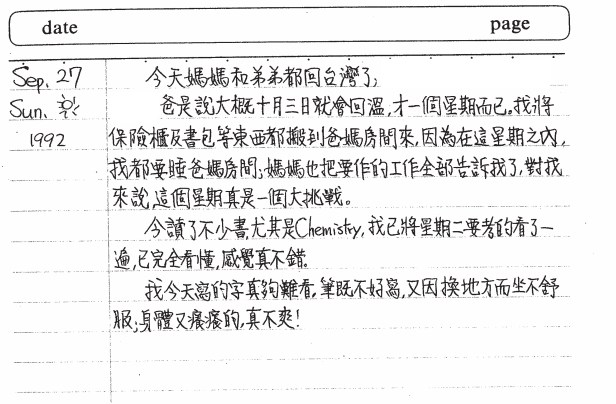 date page
Sep. 27 今天媽媽和弟弟都回台灣了,
Sun. 爸是說大概十月三日就會回溫,才一個星期而已。我將
1992 保險櫃及書包等東西都搬到爸媽房間來,因為在這星期之內,
我都要睡爸媽房間;媽媽也把要作的工作全部告訴我了,對我
來說,這個星期真是一個大挑戰。
今讀了不少書,尤其是Chemistry,我已將星期二要考的看了一
遍,已完全看懂,感覺真不錯。
我今天寫的字真夠難看,筆既不好寫,又因換地方而坐不舒
服;身體又癢癢的,真不爽!